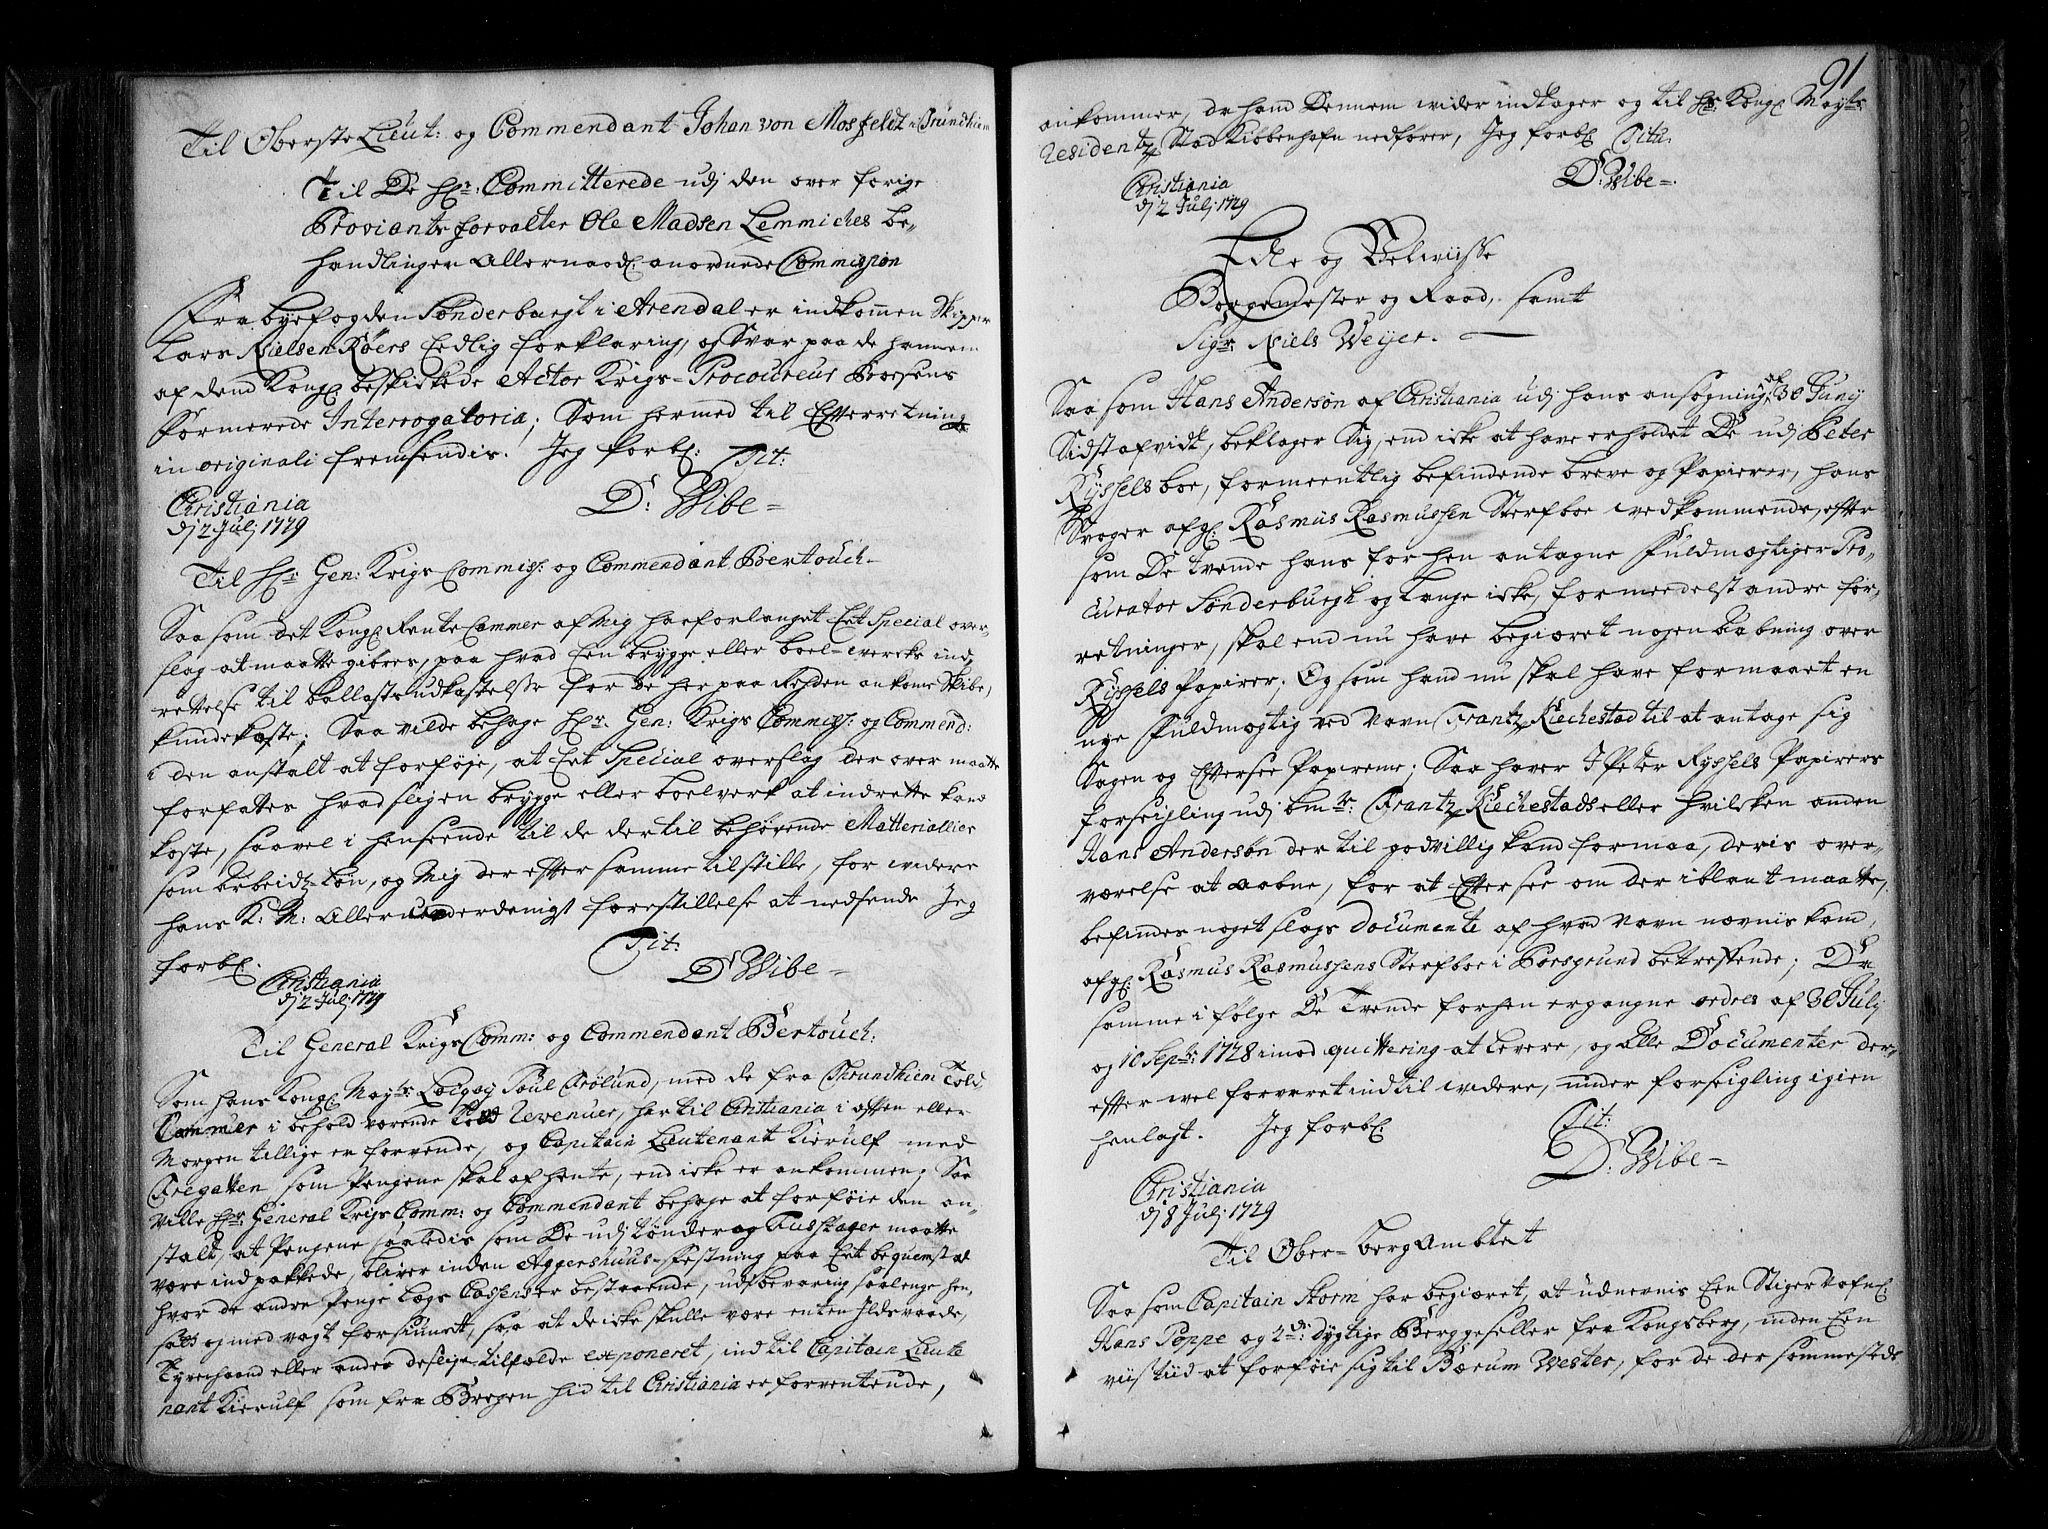 Til Oberste Lieut: og Commendant Johan von Mosfeldt i Trundhiem
Til De Hr: Committerede udj den over forige
Proviantz forvalter Ole Madsen Lemmiches be-
handlinger Allernaadt anordnede Commission
Fra byefogden Sønderburgh i Arendal er indkommen Skipper
Lars Nielsen Røers Eedlig forklaring, og Svar paa de hannem
af dend Kongl beskikkede Actor Krigs-Procureur Boesens
Formerede Interrogatoria; Som hermed til Efterretning
in originali fremsendis. Jeg forbl: Tit:
Christiania
dj 2 Julj 1729
D: Wibe=
Til Hr: Gen: Krigs Commiss: og Commendant Bertouch-
Saa som det Kongl Rente Cammer af Mig har forlanget Eet Special over-
slag at maatte gives, paa hvad Een brygge eller boel-wercks ind-
rettelse til ballasts udkastelse for de her paa Reeden ankomne Skibe,
kunde koste; Saa vilde behage Hr. Gen: Krigs Commiss: og Commend:
i den anstalt at forføje, at Eet Special overslag der over maatte
forfattes hvad sligen brygge eller boelverk at indrette kand
koste, saavel i henseende til de der til behøvende Matterialier
som arbeidz-løn, og Mig der efter samme tilstille, for widere
hans K: M: Allerunderdanigst forestillelse at nedsende Jeg
forbl. Tit:
Christiania
dj 2 Julj 1729
D Wibe=
Til General Krigs Comm: og Commendant Bertouch:
Som hans Kongl Mayts: Laqvaj Poul Frølund, med de fra Thrundhiem Told
Cammer i behold værende Revenuer, her til Christiania i aften eller
Morgen tillige er forvende, og Capitain Lieutenant Kierulf med
Fregatten som Pengene skal af hente, end icke er ankommen; Saa
Ville Hr: General Krigs Comm: og Commendant behage at forføie den an-
stalt, at Pengene saaledis som De udj tønder og Fustager maatte
være indpakkede, bliver inden Aggershuus-Festning paa Eet beqvemt sted
hvor de andre Penge Lægs Cassens er bestaaende, udj bevaring saalenge hen-
satt og med vagt forsiunet, saa at de icke skulle være enten Ildsvaade,
Tyvehaand eller andre deslige tilfælde exponeret, ind til Capitain Lieute
nant Kierulf som fra Bergen hid til Christiania er forventende,
91
ankommer, da hand Dennem wider indtager og til Hs: Kongl Mayts:
Residentz Stad Kiøbenhafn nedfører, Jeg forbl Titu:
Christiania
dj 2 Julj 1729
D: Wibe=
Edle og Velviisse
Borgemester og Raad, samt
Sigr: Niels Weyer.
Saa som Hans Andersøn af Christiania udj hans ansøgning af 30 Junij
Sidst afvidt, beklager Sig, end icke at have erholdet De udj Peter
Ryssels boe, formeentlig befindende breve og Papierer, hans
Svoger afgl: Rasmus Rasmussen Sterfboe wedkommende, efter
som De tvende hans forhen antagne Fuldmegtiger Pro-
curator Sønderburgh og Lange icke, formeedelst andre for-
retninger, skal end nu have begieret nogen aabning over
Ryssels Papirer; Og som hand nu skal have formaaet en
nye Fuldmegtig ved Navn Frantz Kiechestad til at antage sig
Sagen og Eftersee Papirerne; Saa haver I Peter Ryssels Papirers
forseigling udj bmte: Frantz Kiechestads eller hvilcken anden
Hans Andersøn der til godvillig kand formaa, deris over-
værelse at aabne, for at Eftersee om der iblant maatte,
befindes noget slags documente af hvad Navn nævnis kand,
afgl: Rasmus Rasmussens Sterfboe i Porsgrund betreffende; De
samme i følge De tvende forhen ergangne ordres af 30 Julij
og 10 Sepbr: 1728 imod qvittering at levere, og alle Documenter der-
efter wel forvaret indtil widere, under forseigling igien
henlagt. Jeg forbl: Tit:
Christiania
dj 8 Julj 1729
D: Wibe=
Til Ober-bergAmbtet
Saa som Capitain Storm har begieret, at udnevnis Een Stiger Nafnl:
Hans Poppe og 2de: dygtige Berggeseller fra Kongsberg, inden Een
viis tiid at forføie sig til Bærum Wercker, for de der sommesteds